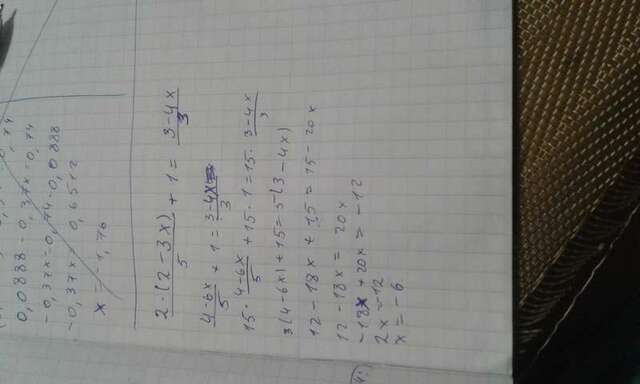 0,74
0,0888 - 0,37x = 0,74
-0,37x = 0,74 - 0,0888
-0,37x = 0,6512
x = -1,76
2·(2-3x)/5 + 1 = 3-4x/3
4-6x/5 + 1 = 3-4x/3
15· 4-6x/5 + 15·1 = 15· 3-4x/3
3(4-6x) + 15 = 5(3-4x)
12 - 18x + 15 = 15 - 20x
12 - 18x = 20x
-18x + 20x = -12
2x = -12
x = -6